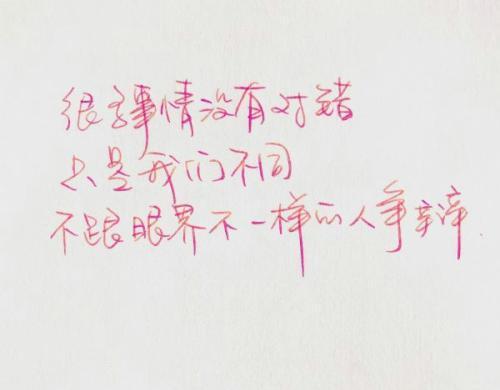 很多事情没有对错
只是我们不同
不跟眼界不一样的人争辩